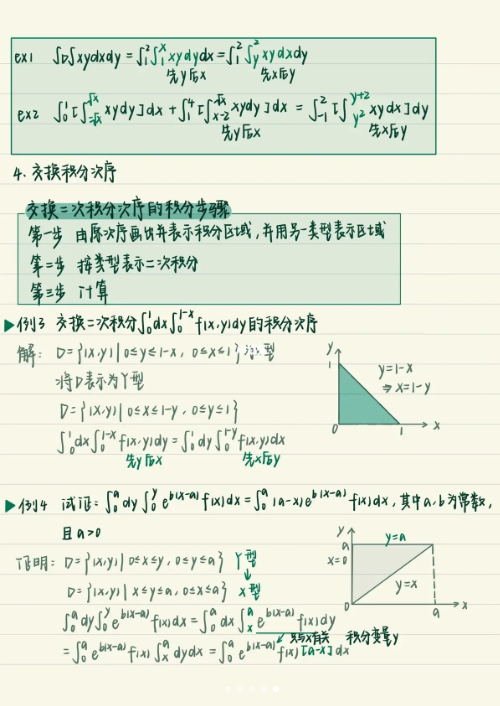 ex1 ∫∫_D xydxdy = ∫_1^2∫_1^x xydydx = ∫_1^2∫_y^2 xydxdy
先y后x 先x后y
ex2 ∫_0^1[∫_{-√x}^{√x} xydy]dx + ∫_1^4[∫_{x-2}^{√x} xydy]dx = ∫_{-1}^2[∫_{y²}^{y+2} xydx]dy
先y后x 先x后y
4. 交换积分次序
交换二次积分次序的积分步骤
第一步 由原次序画出并表示积分区域,并用另一类型表示区域
第二步 按类型表示二次积分
第三步 计算
▶例3 交换二次积分∫_0^1dx∫_0^{1-x}f(x,y)dy的积分次序
解: D={(x,y)|0≤y≤1-x, 0≤x≤1} 型
将D表示为Y型
D={(x,y)|0≤x≤1-y, 0≤y≤1}
∫_0^1dx∫_0^{1-x}f(x,y)dy=∫_0^1dy∫_0^{1-y}f(x,y)dx
先y后x 先x后y
y
1
y=1-x
⇒ x=1-y
0 1 x
▶例4 试证:∫_0^a dy∫_0^y e^{b(x-a)}f(x)dx=∫_0^a(a-x)e^{b(x-a)}f(x)dx,其中a、b为常数,
且a>0
证明: D={(x,y)|0≤x≤y, 0≤y≤a} Y型
↓
D={(x,y)|x≤y≤a, 0≤x≤a} X型
∫_0^a dy∫_0^y e^{b(x-a)}f(x)dx=∫_0^a dx∫_x^a e^{b(x-a)}f(x)dy
只与x有关 积分变量y
=∫_0^a e^{b(x-a)}f(x)∫_x^a dydx=∫_0^a e^{b(x-a)}f(x)[a-x]dx
y
a
y=a
x=0
y=x
0 a x